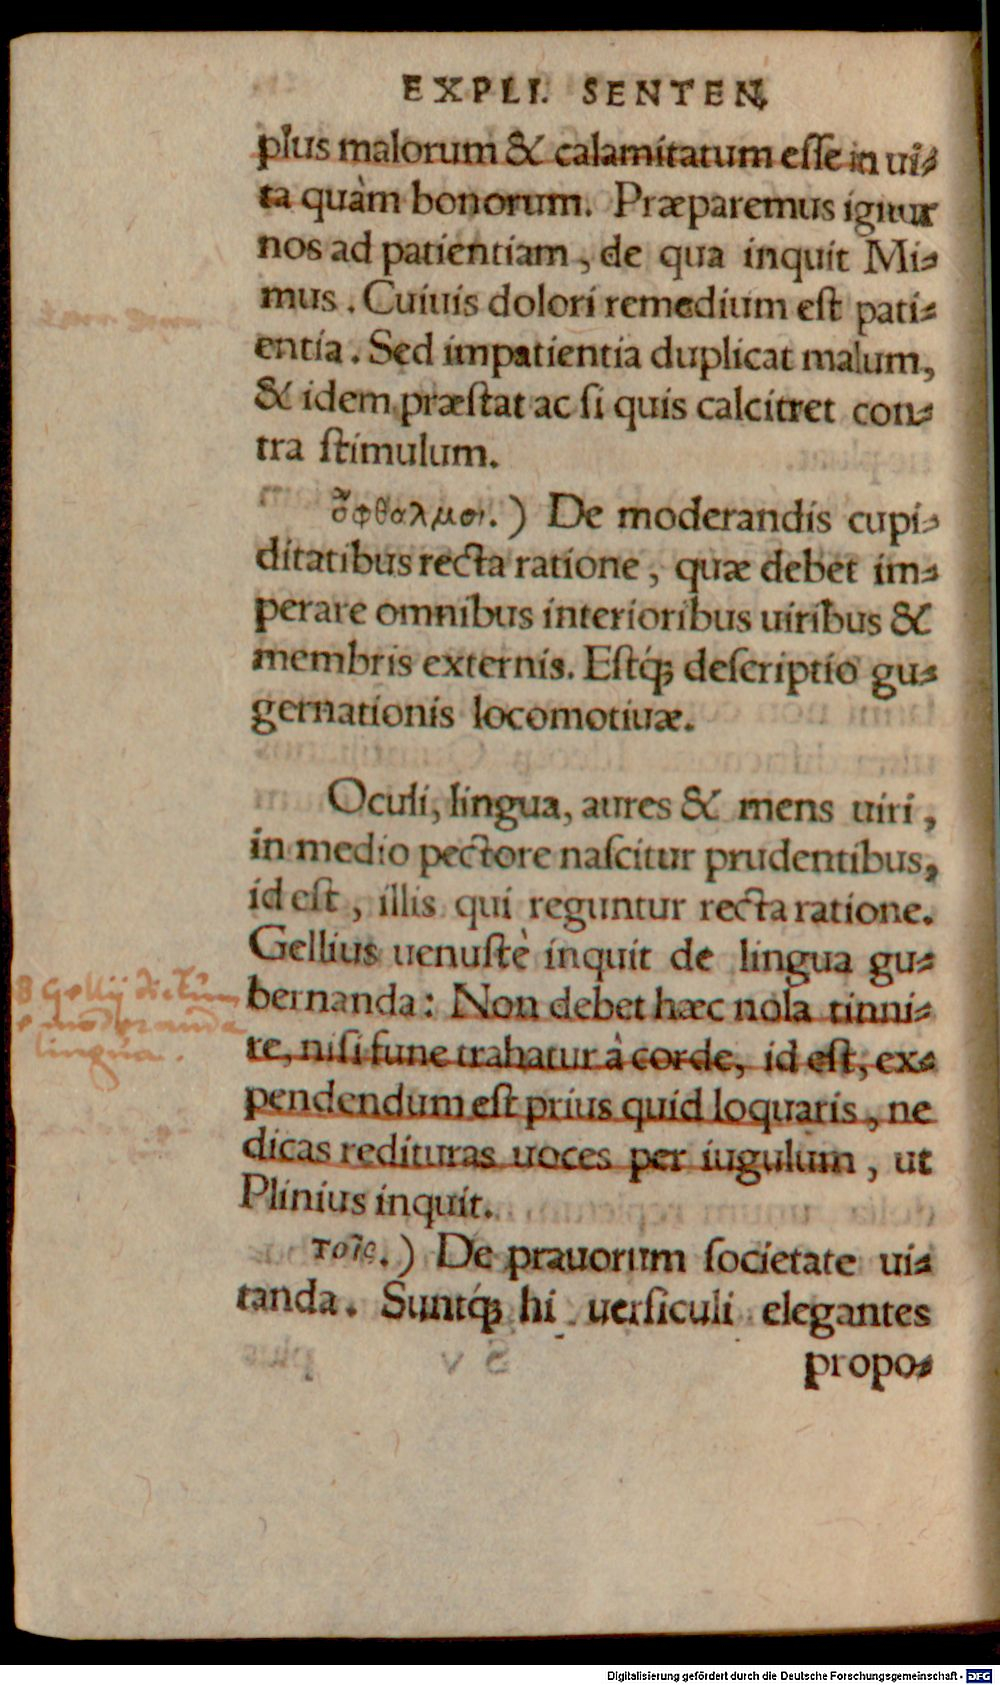 EXPLI. SENTEN.
plus malorum & calamitatum esse in ui-
ta quàm bonorum. Præparemus igitur
nos ad patientiam, de qua inquit Mi-
mus. Cuiuis dolori remedium est pati-
entia. Sed impatientia duplicat malum,
& idem præstat ac si quis calcitret con-
tra stimulum.
ὀφθαλμοι.) De moderandis cupi-
ditatibus recta ratione, quæ debet im-
perare omnibus interioribus uiribus &
membris externis. Estq́; descriptio gu-
gernationis locomotiuæ.
Oculi, lingua, aures & mens uiri,
in medio pectore nascitur prudentibus,
id est, illis qui reguntur recta ratione.
Gellius uenustè inquit de lingua gu-
bernanda: Non debet hæc nola tinni-
re, nisi fune trahatur à corde, id est, ex-
pendendum est prius quid loquaris, ne
dicas redituras uoces per iugulum, ut
Plinius inquit.
τοῖς.) De prauorum societate ui-
tanda. Suntq́; hi uersiculi elegantes
propo-
Gellij dictum
moderanda
lingua.
Digitalisierung gefördert durch die Deutsche Forschungsgemeinschaft - DFG